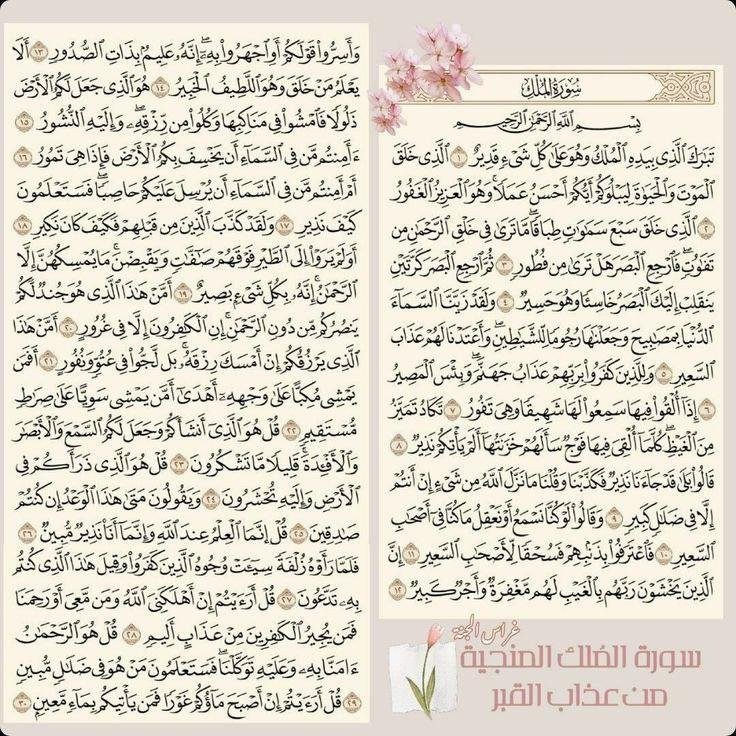 سُورَةُ المُلْكِ
بِسْمِ اللَّهِ الرَّحْمَٰنِ الرَّحِيمِ
تَبَارَكَ الَّذِي بِيَدِهِ الْمُلْكُ وَهُوَ عَلَىٰ كُلِّ شَيْءٍ قَدِيرٌ ١ الَّذِي خَلَقَ
الْمَوْتَ وَالْحَيَاةَ لِيَبْلُوَكُمْ أَيُّكُمْ أَحْسَنُ عَمَلًا ۚ وَهُوَ الْعَزِيزُ الْغَفُورُ
٢ الَّذِي خَلَقَ سَبْعَ سَمَاوَاتٍ طِبَاقًا ۖ مَّا تَرَىٰ فِي خَلْقِ الرَّحْمَٰنِ مِن
تَفَاوُتٍ ۖ فَارْجِعِ الْبَصَرَ هَلْ تَرَىٰ مِن فُطُورٍ ٣ ثُمَّ ارْجِعِ الْبَصَرَ كَرَّتَيْنِ
يَنقَلِبْ إِلَيْكَ الْبَصَرُ خَاسِئًا وَهُوَ حَسِيرٌ ٤ وَلَقَدْ زَيَّنَّا السَّمَاءَ
الدُّنْيَا بِمَصَابِيحَ وَجَعَلْنَاهَا رُجُومًا لِّلشَّيَاطِينِ ۖ وَأَعْتَدْنَا لَهُمْ عَذَابَ
السَّعِيرِ ٥ وَلِلَّذِينَ كَفَرُوا بِرَبِّهِمْ عَذَابُ جَهَنَّمَ ۖ وَبِئْسَ الْمَصِيرُ
٦ إِذَا أُلْقُوا فِيهَا سَمِعُوا لَهَا شَهِيقًا وَهِيَ تَفُورُ ٧ تَكَادُ تَمَيَّزُ
مِنَ الْغَيْظِ ۖ كُلَّمَا أُلْقِيَ فِيهَا فَوْجٌ سَأَلَهُمْ خَزَنَتُهَا أَلَمْ يَأْتِكُمْ نَذِيرٌ ٨
قَالُوا بَلَىٰ قَدْ جَاءَنَا نَذِيرٌ فَكَذَّبْنَا وَقُلْنَا مَا نَزَّلَ اللَّهُ مِن شَيْءٍ إِنْ أَنتُمْ
إِلَّا فِي ضَلَالٍ كَبِيرٍ ٩ وَقَالُوا لَوْ كُنَّا نَسْمَعُ أَوْ نَعْقِلُ مَا كُنَّا فِي أَصْحَابِ
السَّعِيرِ ١٠ فَاعْتَرَفُوا بِذَنبِهِمْ فَسُحْقًا لِّأَصْحَابِ السَّعِيرِ ١١ إِنَّ
الَّذِينَ يَخْشَوْنَ رَبَّهُم بِالْغَيْبِ لَهُم مَّغْفِرَةٌ وَأَجْرٌ كَبِيرٌ ١٢
وَأَسِرُّوا قَوْلَكُمْ أَوِ اجْهَرُوا بِهِ ۖ إِنَّهُ عَلِيمٌ بِذَاتِ الصُّدُورِ ١٣ أَلَا
يَعْلَمُ مَنْ خَلَقَ وَهُوَ اللَّطِيفُ الْخَبِيرُ ١٤ هُوَ الَّذِي جَعَلَ لَكُمُ الْأَرْضَ
ذَلُولًا فَامْشُوا فِي مَنَاكِبِهَا وَكُلُوا مِن رِّزْقِهِ ۖ وَإِلَيْهِ النُّشُورُ ١٥
ءَأَمِنتُم مَّن فِي السَّمَاءِ أَن يَخْسِفَ بِكُمُ الْأَرْضَ فَإِذَا هِيَ تَمُورُ ١٦
أَمْ أَمِنتُم مَّن فِي السَّمَاءِ أَن يُرْسِلَ عَلَيْكُمْ حَاصِبًا ۖ فَسَتَعْلَمُونَ
كَيْفَ نَذِيرِ ١٧ وَلَقَدْ كَذَّبَ الَّذِينَ مِن قَبْلِهِمْ فَكَيْفَ كَانَ نَكِيرِ ١٨
أَوَلَمْ يَرَوْا إِلَى الطَّيْرِ فَوْقَهُمْ صَافَّاتٍ وَيَقْبِضْنَ ۚ مَا يُمْسِكُهُنَّ إِلَّا
الرَّحْمَٰنُ ۚ إِنَّهُ بِكُلِّ شَيْءٍ بَصِيرٌ ١٩ أَمَّنْ هَٰذَا الَّذِي هُوَ جُندٌ لَّكُمْ
يَنصُرُكُم مِّن دُونِ الرَّحْمَٰنِ ۚ إِنِ الْكَافِرُونَ إِلَّا فِي غُرُورٍ ٢٠ أَمَّنْ هَٰذَا
الَّذِي يَرْزُقُكُمْ إِنْ أَمْسَكَ رِزْقَهُ ۚ بَل لَّجُّوا فِي عُتُوٍّ وَنُفُورٍ ٢١ أَفَمَن
يَمْشِي مُكِبًّا عَلَىٰ وَجْهِهِ أَهْدَىٰ أَمَّن يَمْشِي سَوِيًّا عَلَىٰ صِرَاطٍ
مُّسْتَقِيمٍ ٢٢ قُلْ هُوَ الَّذِي أَنشَأَكُمْ وَجَعَلَ لَكُمُ السَّمْعَ وَالْأَبْصَارَ
وَالْأَفْئِدَةَ ۖ قَلِيلًا مَّا تَشْكُرُونَ ٢٣ قُلْ هُوَ الَّذِي ذَرَأَكُمْ فِي
الْأَرْضِ وَإِلَيْهِ تُحْشَرُونَ ٢٤ وَيَقُولُونَ مَتَىٰ هَٰذَا الْوَعْدُ إِن كُنتُمْ
صَادِقِينَ ٢٥ قُلْ إِنَّمَا الْعِلْمُ عِندَ اللَّهِ وَإِنَّمَا أَنَا نَذِيرٌ مُّبِينٌ ٢٦
فَلَمَّا رَأَوْهُ زُلْفَةً سِيئَتْ وُجُوهُ الَّذِينَ كَفَرُوا وَقِيلَ هَٰذَا الَّذِي كُنتُم
بِهِ تَدَّعُونَ ٢٧ قُلْ أَرَأَيْتُمْ إِنْ أَهْلَكَنِيَ اللَّهُ وَمَن مَّعِيَ أَوْ رَحِمَنَا
فَمَن يُجِيرُ الْكَافِرِينَ مِنْ عَذَابٍ أَلِيمٍ ٢٨ قُلْ هُوَ الرَّحْمَٰنُ
ءَامَنَّا بِهِ وَعَلَيْهِ تَوَكَّلْنَا ۖ فَسَتَعْلَمُونَ مَنْ هُوَ فِي ضَلَالٍ مُّبِينٍ
٢٩ قُلْ أَرَأَيْتُمْ إِنْ أَصْبَحَ مَاؤُكُمْ غَوْرًا فَمَن يَأْتِيكُم بِمَاءٍ مَّعِينٍ ٣٠
غراس الجنة
سورة الملك المنجية
من عذاب القبر